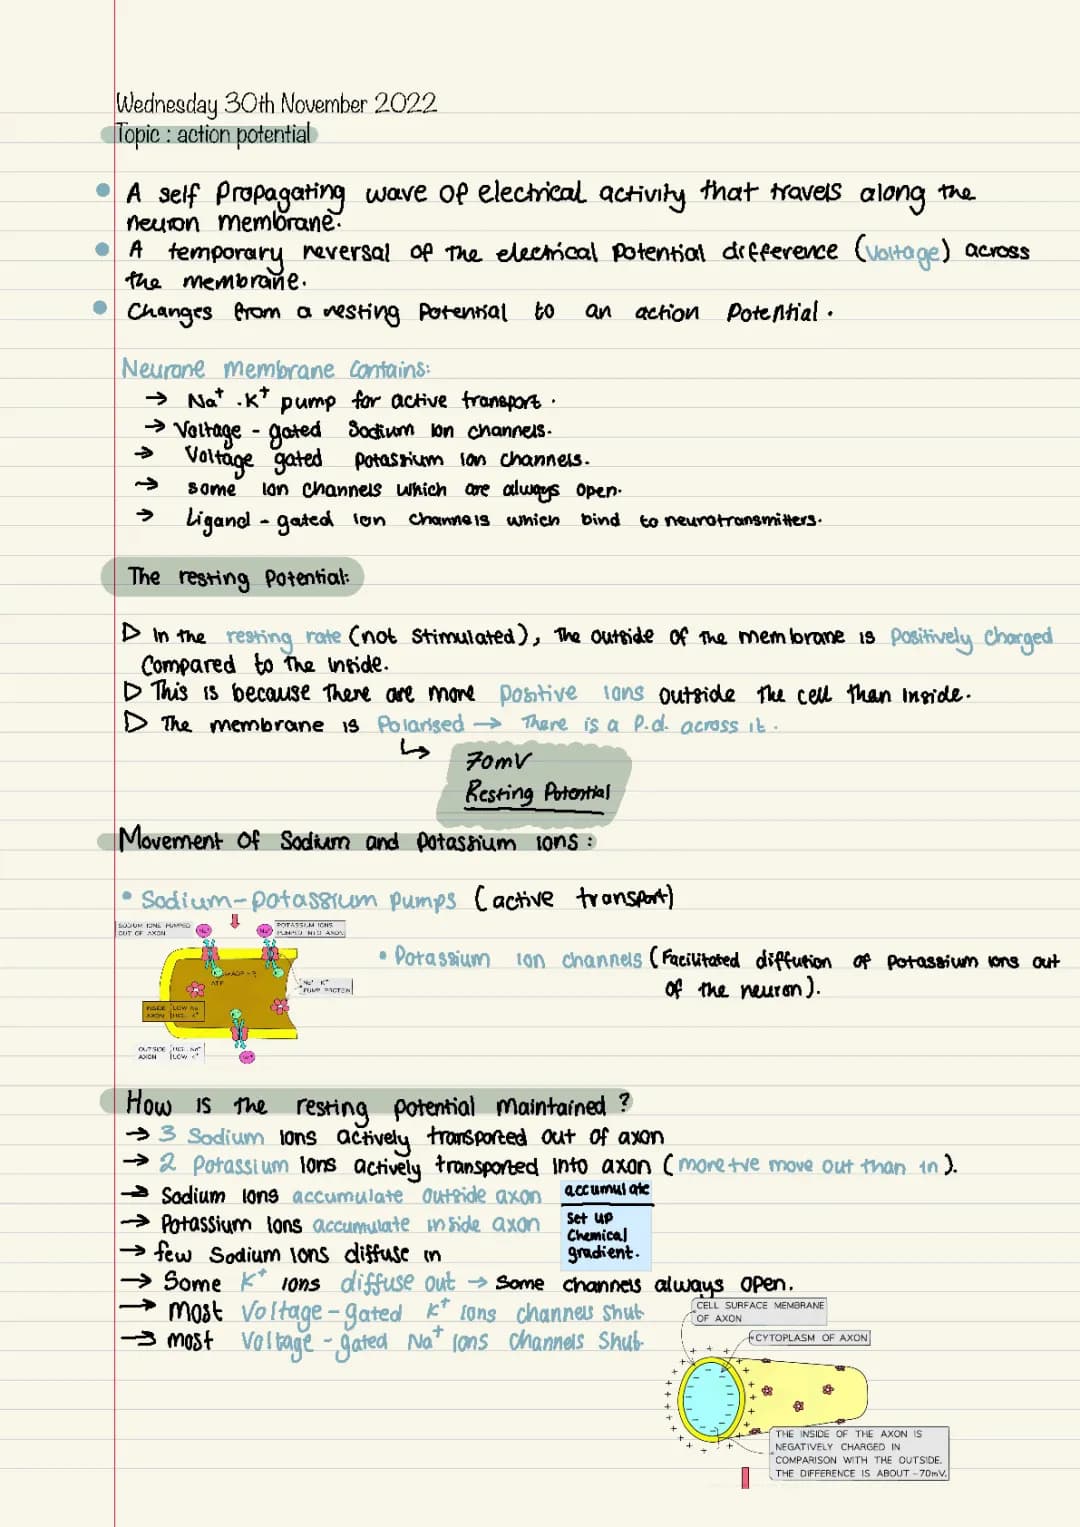 Wednesday 30th November 2022
Topic : action potential
A self Propagating wave of electrical activity that travels along the
neuron membrane.
A temporary reversal of the electrical Potential difference (Voltage) across
the membrane.
Changes from a resting Potential to an action Potential.
Neurone membrane Contains:
→ Na⁺ .K⁺ pump for active transport.
→ Voltage-gated Sodium Ion channels.
→ Voltage gated Potassium Ion Channels.
→ some Ion Channels which are always open.
→ Ligand-gated Ion Channels which bind to neurotransmitters.
The resting Potential:
▷ In the resting rate (not Stimulated), The outside of the membrane is Positively Charged
Compared to the inside.
▷ This is because there are more positive ions outside the cell than inside.
▷ The membrane is Polarised → There is a P.d. across it.
↳ 70mV
Resting Potential
Movement Of Sodium and Potassium ions :
• Sodium-potassium Pumps (active transport)
SODIUM IONS PUMPED
OUT OF AXON
POTASSIUM IONS
PUMPED INTO AXON
Na⁺ K⁺
PUMP PROTEIN
ATP
INSIDE AXON
LOW Na⁺
OUTSIDE AXON
LOW K⁺
• Potassium ion channels (Facilitated diffution of potassium ions out
of the neuron).
How is the resting potential maintained ?
→ 3 Sodium ions actively transported out of axon
→ 2 Potassium ions actively transported into axon (more +ve move out than in).
→ Sodium ions accumulate outside axon
→ Potassium ions accumulate inside axon
accumulate
Set up
Chemical
gradient.
→ few Sodium ions diffuse in
→ Some K⁺ ions diffuse out → Some channels always open.
→ most Voltage-gated K⁺ ions channels shut
→ most Voltage-gated Na⁺ ions Channels Shut
CELL SURFACE MEMBRANE
OF AXON
CYTOPLASM OF AXON
THE INSIDE OF THE AXON IS
NEGATIVELY CHARGED IN
COMPARISON WITH THE OUTSIDE.
THE DIFFERENCE IS ABOUT -70mV.